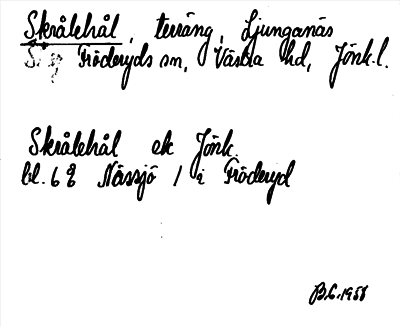 Skrålehål, terräng, Ljunganäs
Fröderyds sn, Västra hd, Jönk.l.
Skrålehål ek Jönk.
bl. 6 Nässjö / i Fröderyd
B.C. 1958